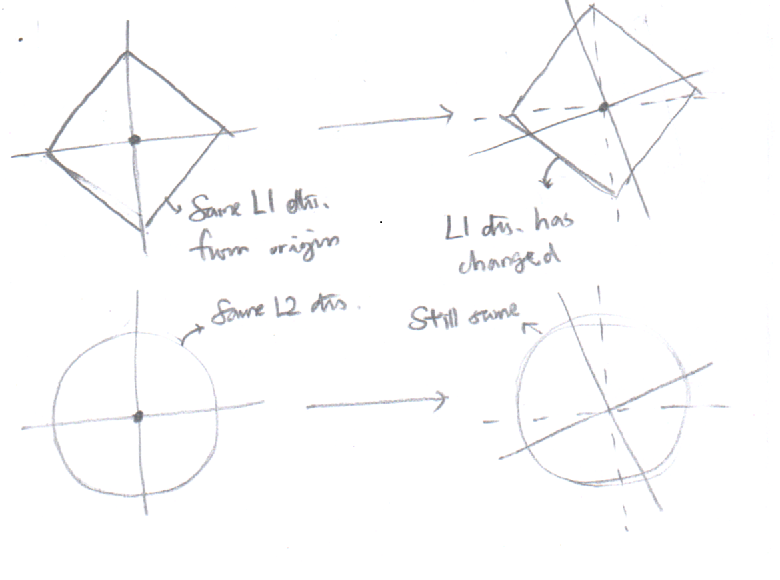 Same L1 dis.
from origin
L1 dis. has
changed
Same L2 dis.
Still same